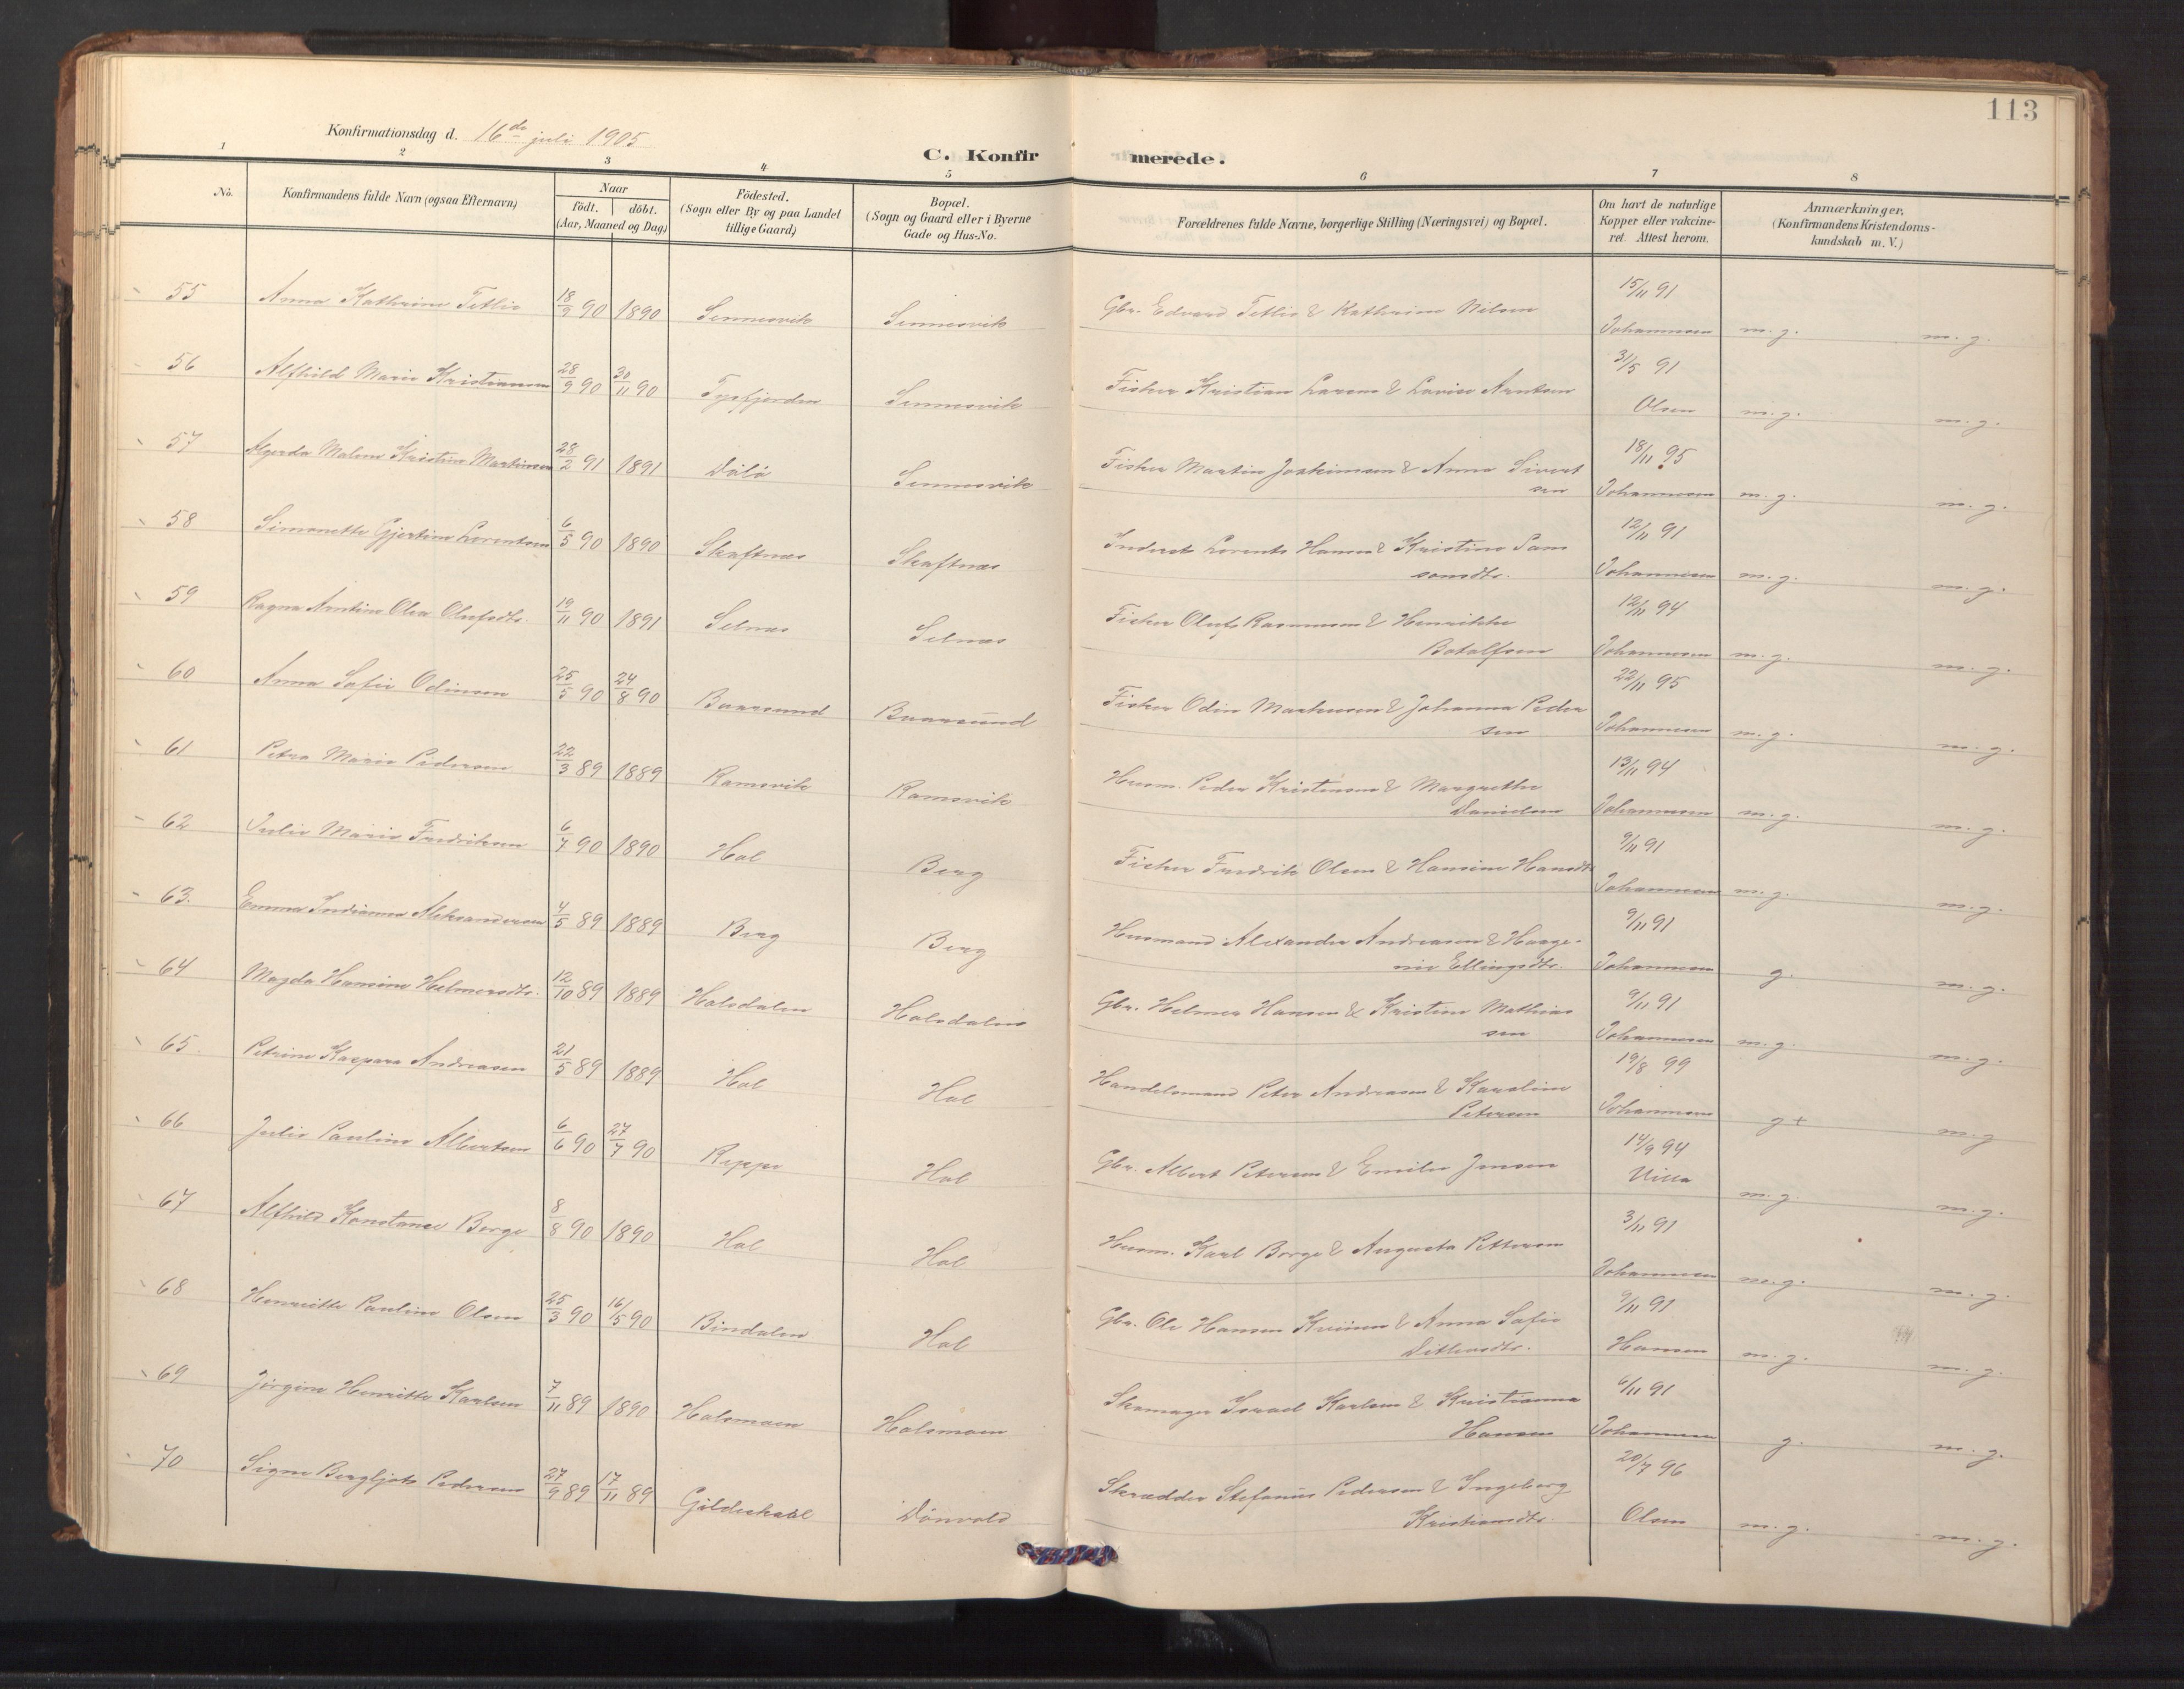 113
Konfirmationsdag d. 16de juli 1905
C. Konfirmerede.
1 2 3 4 5 6 7 8
No. Konfirmandens fulde Navn (ogsaa Efternavn) Naar født. døbt. (Aar, Maaned og Dag) Födested. (Sogn eller By og paa Landet tillige Gaard) Bopæl. (Sogn og Gaard eller i Byerne Gade og Hus-No. Forældrenes fulde Navne, borgerlige Stilling (Næringsvei) og Bopæl. Om havt de naturlige Kopper eller vakcineret. Attest herom. Anmærkninger, (Konfirmandens Kristendomskundskab m. V.)
55 Anna Kathrine Tetlie 18/9 90 1890 Sennesvik Sennesvik Gbr. Edvard Tetlie & Kathrine Nilsen 15/11 91 Johannesen m.g. m.g.
56 Alfhild Marie Kristiansen 28/9 90 30/11 90 Tysfjorden Sennesvik Fisker Kristian Larsen & Lovise Arntsen 31/5 91 Olsen m.g. m.g.
57 Malene Kristine Martinsen 28/2 91 1891 Sennesvik Fisker Martin Joakimsen & Anna Sivertsen 18/11 95 Johannesen m.g. m.g.
58 Simonette Gjertine Lorentsen 6/5 90 1890 Skaftnæs Skaftnæs Inderst Lorents Hansen & Kristine Samsonsdtr. 12/11 91 Johannesen m.g. m.g.
59 Ragna Arntine Olea Olufsdtr. 19/11 90 1891 Selnæs Selnæs Fisker Oluf Rasmussen & Henrikke Botolfsen 12/11 94 Johannesen m.g. m.g.
60 Anna Sofie Odinsen 25/5 90 24/8 90 Buxrsund Fisker Odin Markussen & Johanna Pedersen 22/11 95 Johannesen m.g. m.g.
61 Petra Marie Pedersen 22/3 89 1889 Ramsvik Ramsvik Husm. Peder Kristensen & Margrethe Danielsen 13/11 94 Johannesen m.g. m.g.
62 Julie Marie Fredriksen 6/7 90 1890 Hol Berg Fisker Fredrik Olsen & Hansine Hansdtr 9/11 91 Johannesen m.g. m.g.
63. Emma Indianna Aleksandersen 4/5 89 1889 Berg Berg Husmand Alexander Andreasen & Ellingsdtr. 9/11 91 Johannesen g. m.g.
64 Magda Hansine Helmersdtr. 12/10 89 1889 Holsdalen Holsdalen Gbr. Helmer Hansen & Kristine Mathiassen 9/11 91 Johannesen m.g. m.g.
65. Petrine Kaspara Andreasen 21/5 89 1889 Hol Hol Handelsmand Peter Andreasen & Karoline Petersen 19/8 99 Johannesen g+ m.g
66 Julie Pauline Albertsen 6/6 90 27/7 90 Reppe Hol Gbr. Albert Petersen & Emilie Jensen 14/9 94 m.g. m.g.
67 Alfhild Konstanse Borge 8/8 90 1890 Hol Hol Husm. Karl Borge & Augusta Pettersen 3/11 91 Johannesen m.g. m.g.
68 Henriette Pauline Olsen 25/3 90 16/5 90 Bindalen Hol Gbr. Ole Hansen & Anna Sofie Ditlevsdtr. 9/11 91 Hansen m.g. m.g.
69 Jörgine Henritte Karlsen 7/11 89 1890 Holsmoen Holsmoen Skomager Israel Karlsen & Kristianna Hansen 6/11 91 Johannesen g. m.g.
70 Signe Bergljot Pedersen 27/9 89 17/11 89 Gildeskaal Dönvold Skrædder Stefanus Pedersen & Ingeborg Kristiansdtr. 20/7 96 Olsen m.g. m.g.